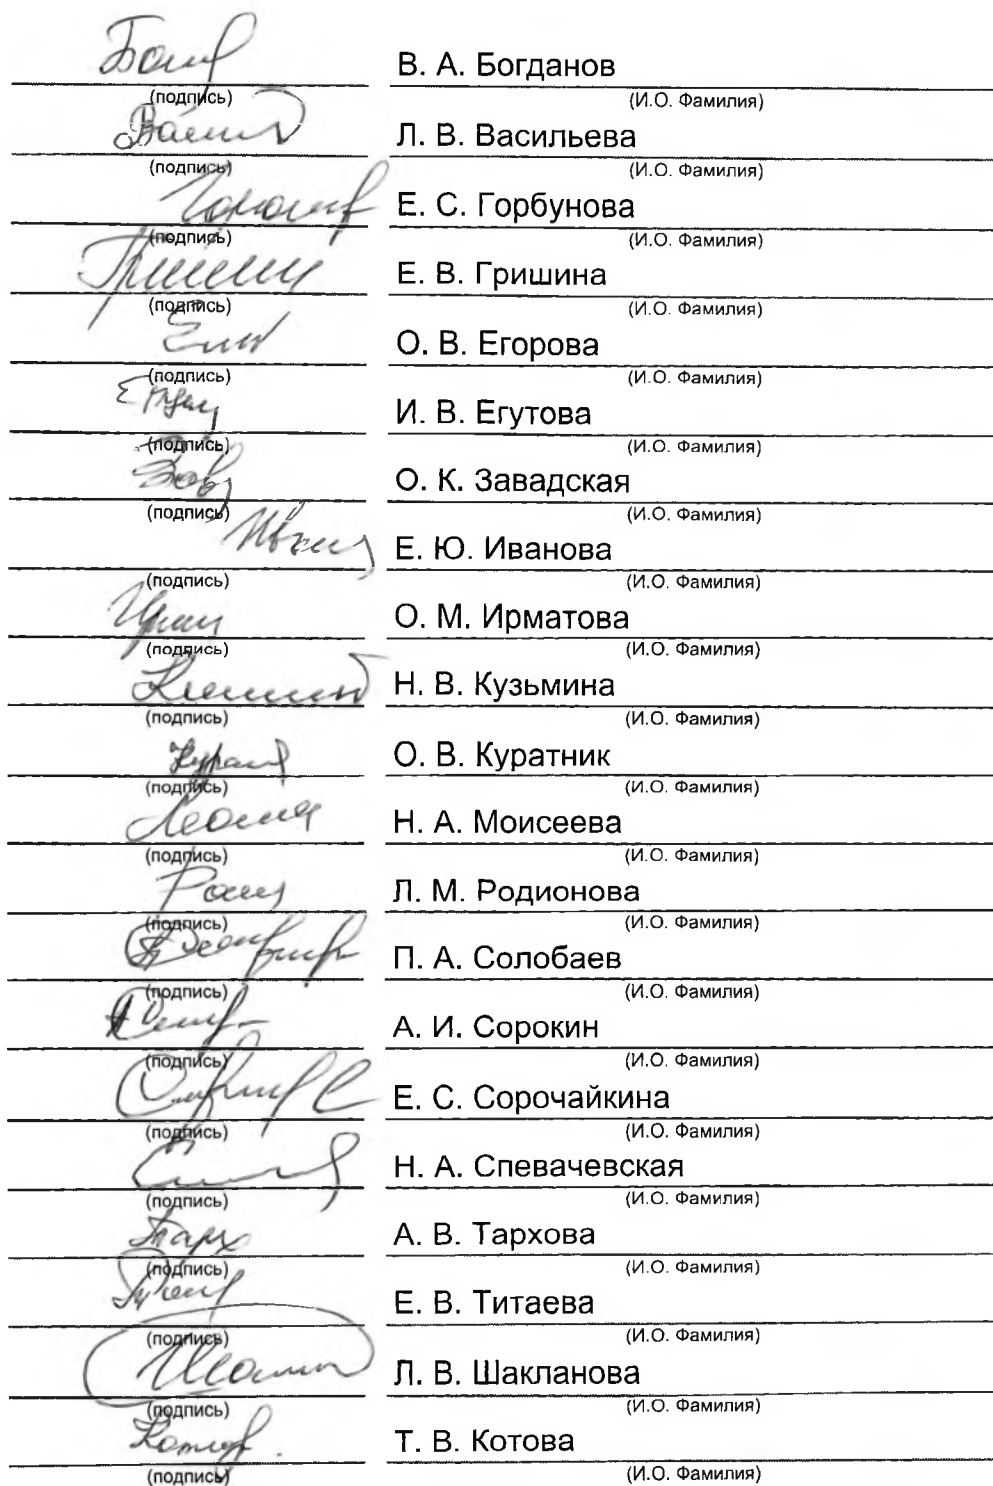 В. А. Богданов
(подпись) (И.О. Фамилия)
Л. В. Васильева
(подпись) (И.О. Фамилия)
Е. С. Горбунова
(подпись) (И.О. Фамилия)
Е. В. Гришина
(подпись) (И.О. Фамилия)
О. В. Егорова
(подпись) (И.О. Фамилия)
И. В. Егутова
(подпись) (И.О. Фамилия)
О. К. Завадская
(подпись) (И.О. Фамилия)
Е. Ю. Иванова
(подпись) (И.О. Фамилия)
О. М. Ирматова
(подпись) (И.О. Фамилия)
Н. В. Кузьмина
(подпись) (И.О. Фамилия)
О. В. Куратник
(подпись) (И.О. Фамилия)
Н. А. Моисеева
(подпись) (И.О. Фамилия)
Л. М. Родионова
(подпись) (И.О. Фамилия)
П. А. Солобаев
(подпись) (И.О. Фамилия)
А. И. Сорокин
(подпись) (И.О. Фамилия)
Е. С. Сорочайкина
(подпись) (И.О. Фамилия)
Н. А. Спевачевская
(подпись) (И.О. Фамилия)
Тарх А. В. Тархова
(подпись) (И.О. Фамилия)
Е. В. Титаева
(подпись) (И.О. Фамилия)
Л. В. Шакланова
(подпись) (И.О. Фамилия)
Т. В. Котова
(подпись) (И.О. Фамилия)